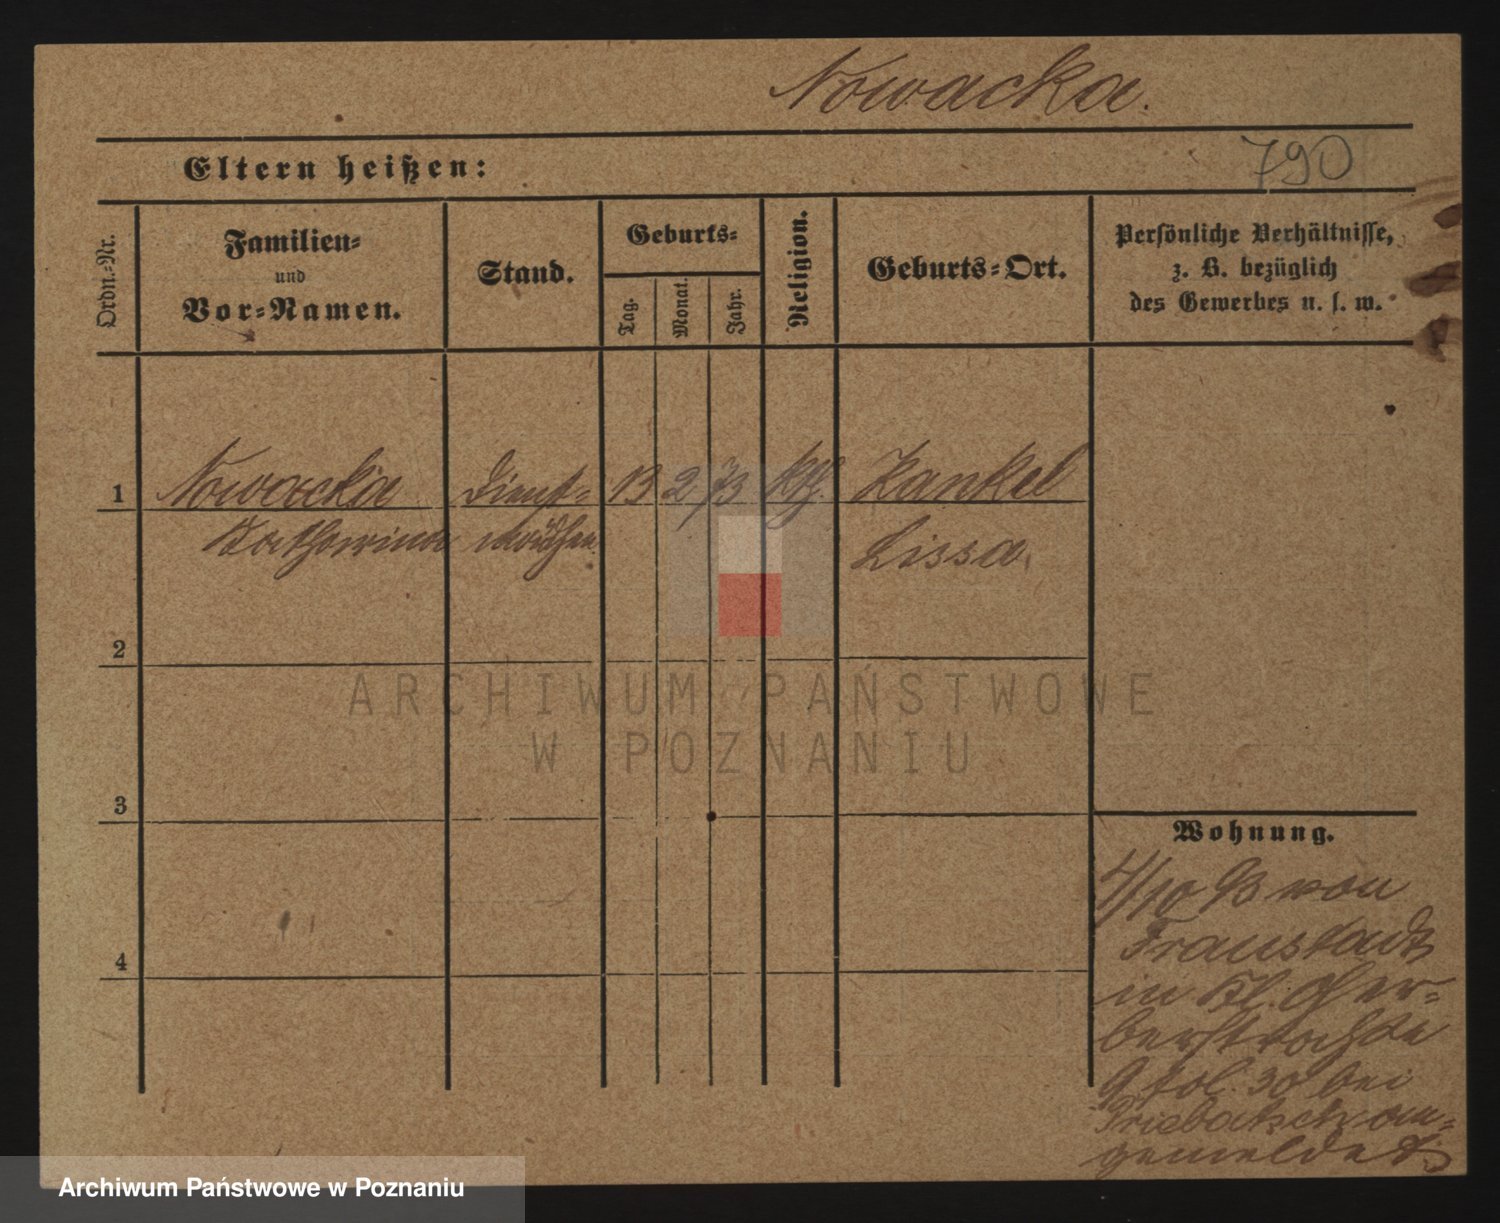 Nowacka.
Eltern heißen:
790
Ordn.-Nr.
Familien-
und
Vor-Namen.
Stand.
Geburts-
Tag.
Monat.
Jahr.
Religion.
Geburts-Ort.
Persönliche Verhältnisse,
z. B. bezüglich
des Gewerbes u. s. w.
1
Nowacka
Dienst-
13
2
73
kth.
Zankel
Katharina
mädchen
Lissa
2
ARCHIWUM PAŃSTWOWE
W POZNANIU
3
Wohnung.
4/10 93 von
Fraustadt
in Kl. Ger-
berstraße
9 fol. 30 bei
Priebatsch an-
gemeldet
4
Archiwum Państwowe w Poznaniu